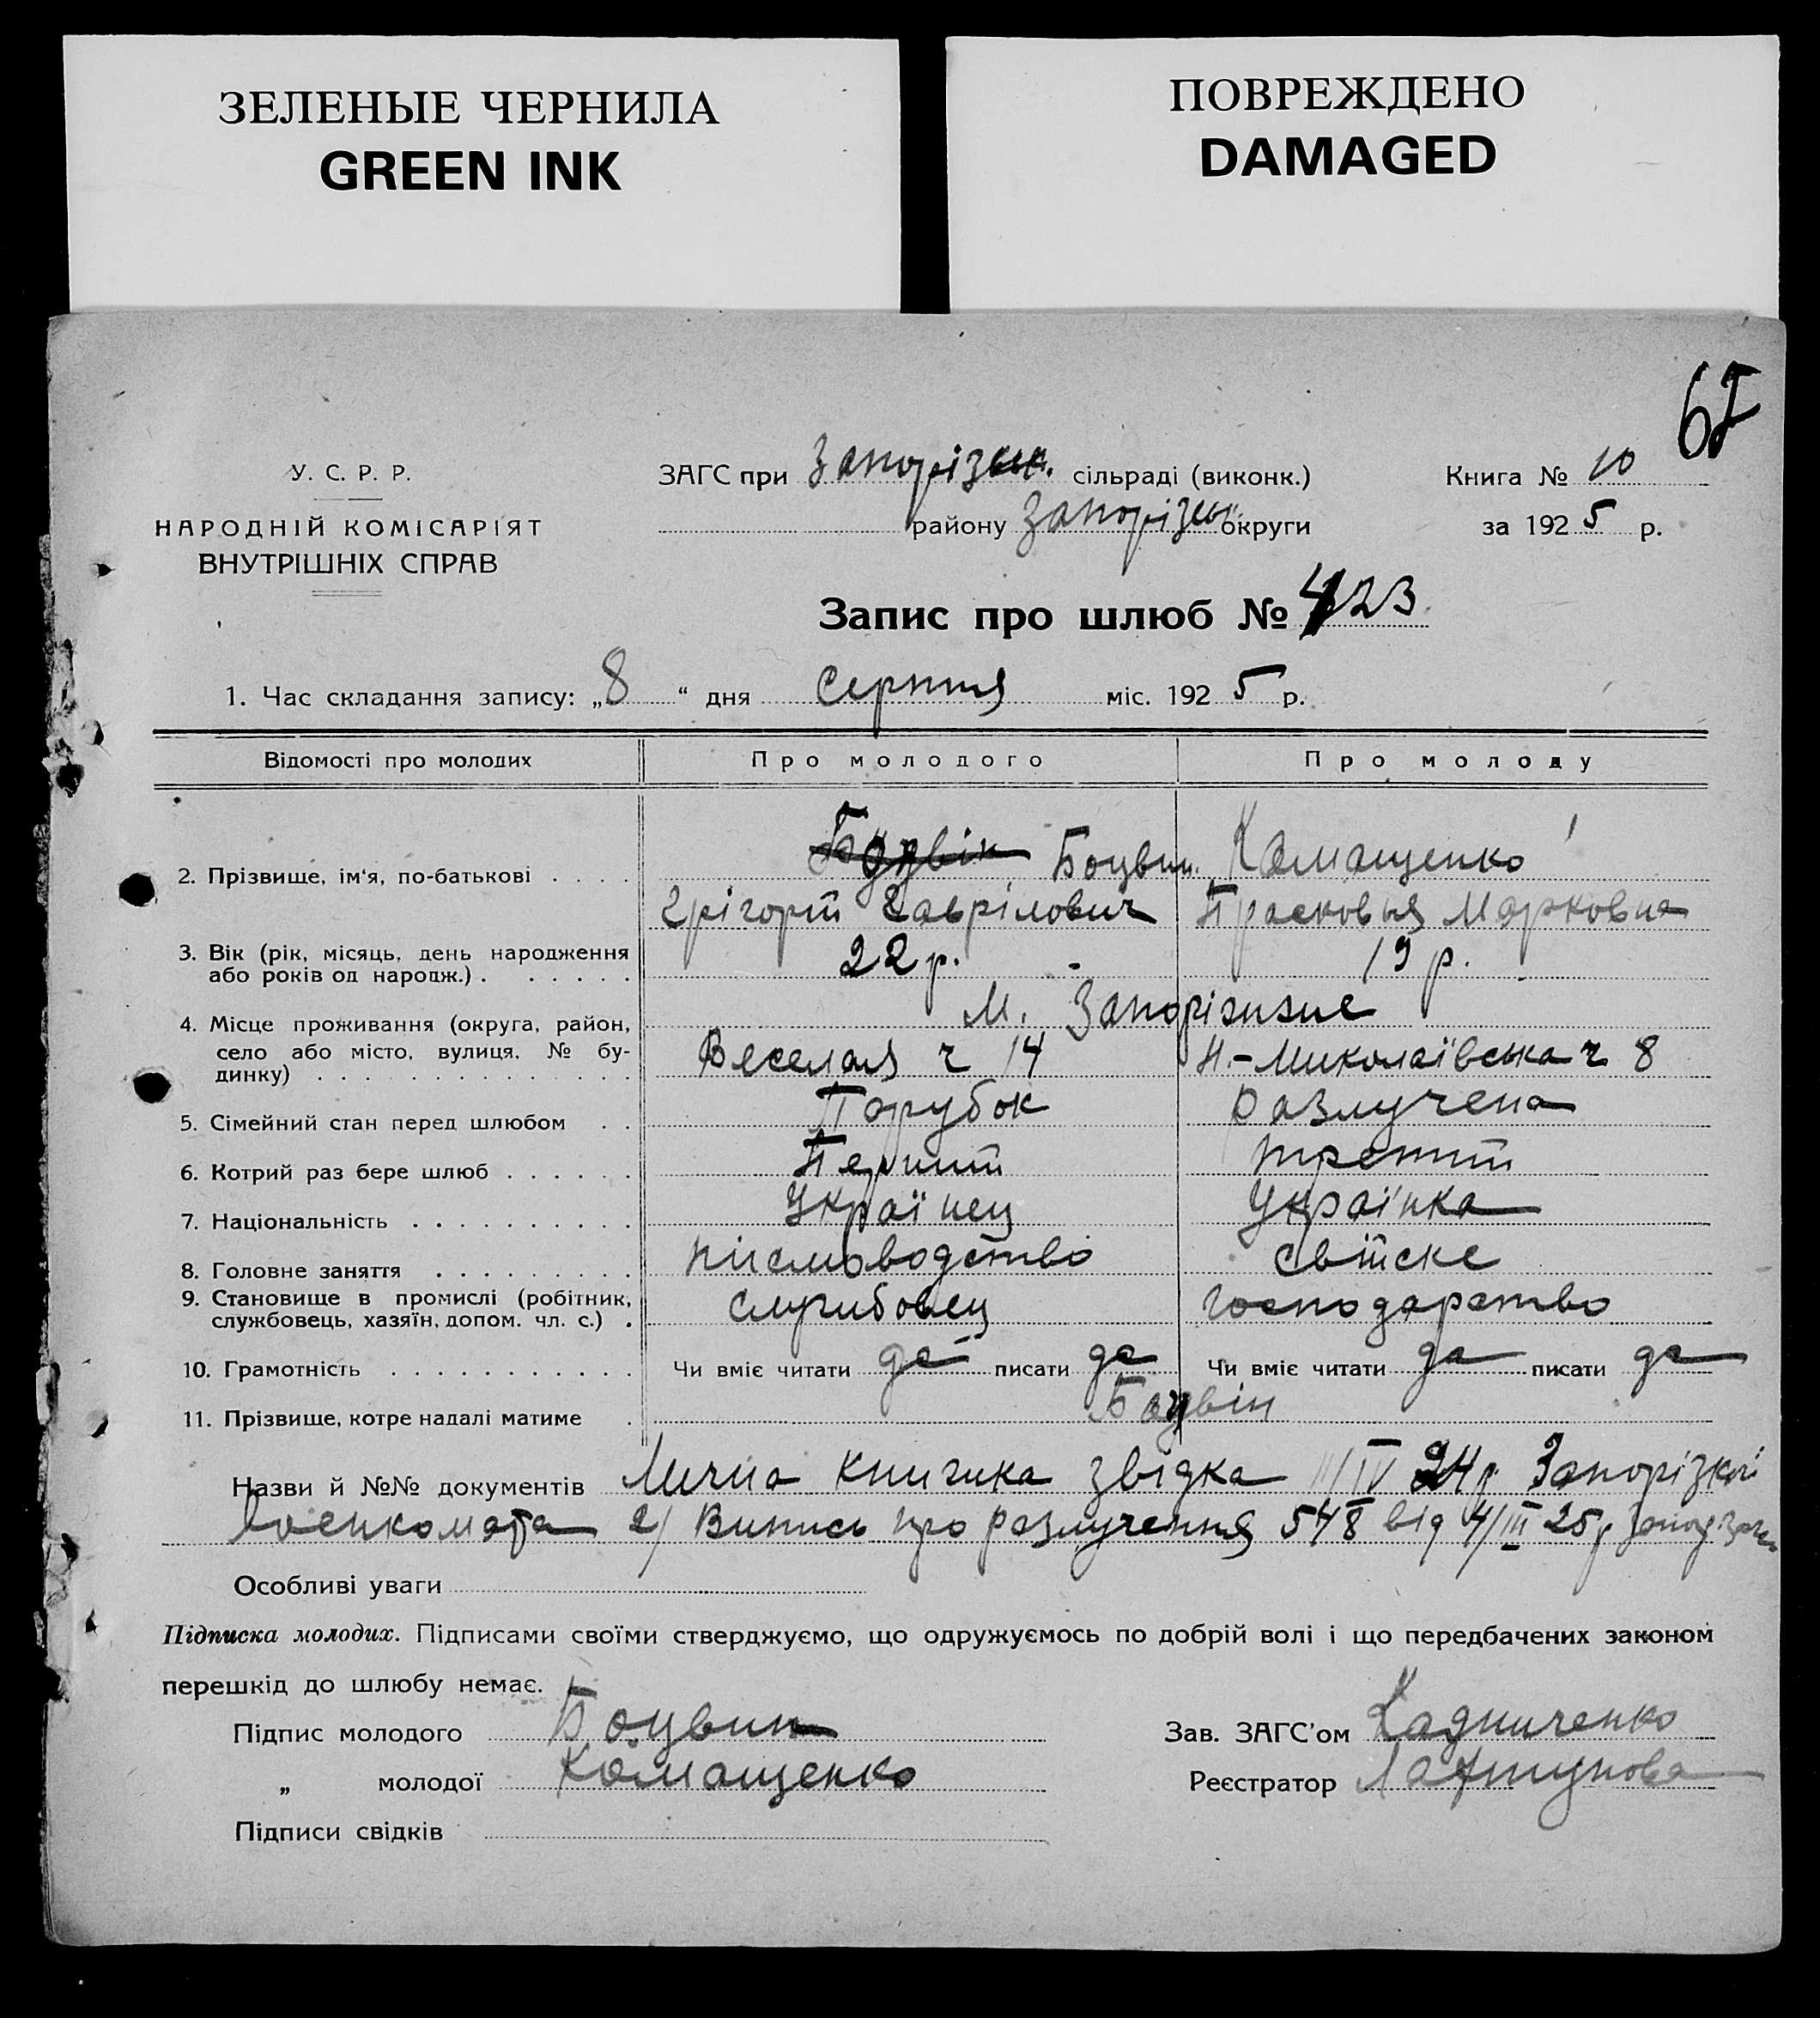 ЗЕЛЕНЫЕ ЧЕРНИЛА
GREEN INK
ПОВРЕЖДЕНО
DAMAGED
У. С. Р. Р.
НАРОДНІЙ КОМІСАРІЯТ
ВНУТРІШНІХ СПРАВ
ЗАГС при Запорізьк. сільраді (виконк.)
району Запорізьк округи
Книга № 10
за 1925 р.
Запис про шлюб № 423
1. Час складання запису: „8“ дня серпня міс. 1925 р.
Відомості про молодих Про молодого Про молоду
2. Прізвище, ім'я, по-батькові . . . . Боцвин Камащенко
Грігорій Гаврілович Прасковья Марковна
3. Вік (рік, місяць, день народження
або років од народж.) . . . . . . 22 р. 19 р.
м. Запоріжжє
4. Місце проживання (округа, район,
село або місто, вулиця, № бу-
динку) . . . . . . . . . . . . . Веселая ч 14 Н.-Миколаївська ч 8
5. Сімейний стан перед шлюбом . . Парубок Разлучена
6. Котрий раз бере шлюб . . . . . . Перший третий
7. Національність . . . . . . . . . . Українец Українка
8. Головне заняття . . . . . . . . . писмоводство свійске
9. Становище в промислі (робітник,
службовець, хазяїн, допом. чл. с.) . службовец господарство
10. Грамотність . . . . . . . . . . . Чи вміє читати да писати да Чи вміє читати да писати да
11. Прізвище, котре надалі матиме . Боцвін
Назви й №№ документів Лична книжка звідка IV 24 р. Запорізької
Военкомата 2/ Випись про разлучення 548 від 4/III 25 р
Особливі уваги
Підписка молодих. Підписами своїми стверджуємо, що одружуємось по добрій волі і що передбачених законом
перешкід до шлюбу немає.
Підпис молодого Боцвин
„ молодої Камащенко
Підписи свідків
Зав. ЗАГС'ом Кадниченко
Реєстратор